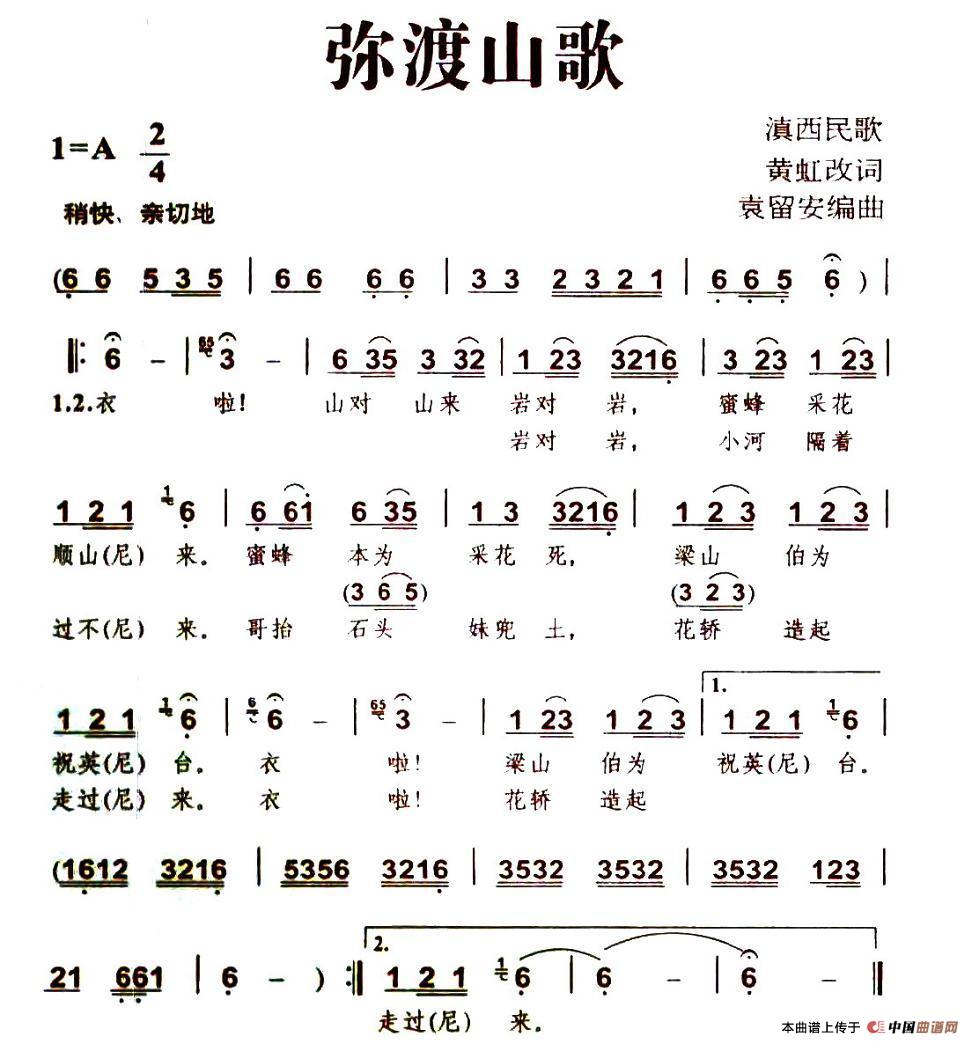 弥渡山歌
1=A 2/4
滇西民歌
黄虹改词
稍快、亲切地
袁留安编曲
(6 6 5 3 5 | 6 6 6 6 | 3 3 2 3 2 1 | 6 6 5 6 ) |
‖: 6 – | 65 3 – | 6 35 3 32 | 1 23 3216 | 3 23 1 23 |
1.2.衣 啦! 山对 山来 岩对 岩, 蜜蜂 采花
岩对 岩, 小河 隔着
1 2 1 1 6 | 6 61 6 35 | 1 3 3216 | 1 2 3 1 2 3 |
顺山(尼) 来。 蜜蜂 本为 采花 死, 梁山 伯为
(3 6 5) (3 2 3)
过不(尼) 来。 哥抬 石头 妹兜 土, 花轿 造起
1.
1 2 1 1 6 | 6 6 – | 65 3 – | 1 23 1 2 3 | 1 2 1 1 6 |
祝英(尼) 台。 衣 啦! 梁山 伯为 祝英(尼) 台。
走过(尼) 来。 衣 啦! 花轿 造起
(1612 3216 | 5356 3216 | 3532 3532 | 3532 123 |
2.
21 661 | 6 – ) :‖ 1 2 1 1 6 | 6 – | 6 – ‖
走过(尼) 来。
本曲谱上传于 中国曲谱网